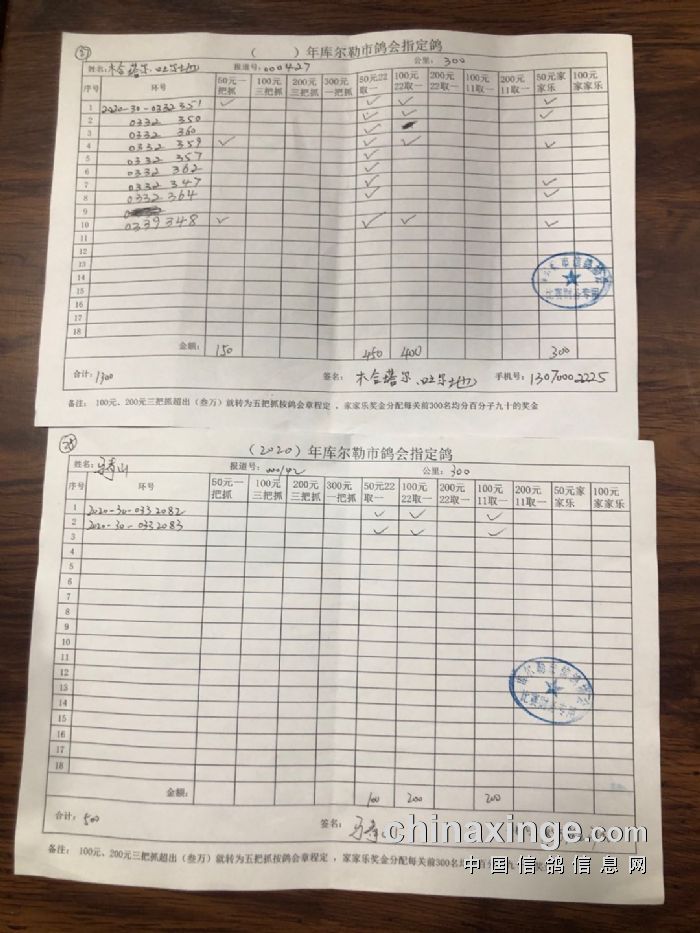 37
（ ）年库尔勒市鸽会指定鸽
姓名: 木合塔尔 报道号: 000427 公里: 300
序号 环号 50元一把抓 100元三把抓 200元三把抓 300元一把抓 50元22取一 100元22取一 200元22取一 100元11取一 200元11取一 50元家家乐 100元家家乐
1 2020-30-0332 351 ✓ ✓ ✓ ✓
2 0332 350 ✓ ✓ ✓
3 0332 360 ✓
4 0332 359 ✓ ✓ ✓ ✓
5 0332 357 ✓
6 0332 362 ✓
7 0332 347 ✓ ✓
8 0332 364 ✓ ✓
9
10 0339348 ✓ ✓ ✓ ✓
11
12
13
14
15
16
17
18
金额: 150 450 400 300
合计: 1300 签名: 木合塔尔 手机号: 13070002225
备注: 100元、200元三把抓超出（叁万）就转为五把抓按鸽会章程定，家家乐奖金分配每关前300名均分百分子九十的奖金
38
（2020）年库尔勒市鸽会指定鸽
姓名: 报道号: 公里: 300
序号 环号 50元一把抓 100元三把抓 200元三把抓 300元一把抓 50元22取一 100元22取一 200元22取一 100元11取一 200元11取一 50元家家乐 100元家家乐
1 2020-30-0332082 ✓ ✓ ✓
2 2020-30-0332083 ✓ ✓ ✓
3
4
5
6
7
8
9
10
11
12
13
14
15
16
17
18
金额: 100 200 200
合计: 500 签名:
备注: 100元、200元三把抓超出（叁万）就转为五把抓按鸽会章程定，家家乐奖金分配每关前300名均分百分子九十的奖
chinaxinge.com
中国信鸽信息网